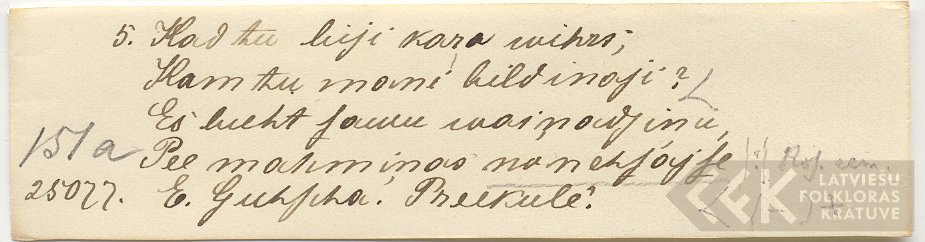 5. Kad tu biji kara wihrs;
Kam tu mani bildinaji?
Es lueht sawu wainadziņu,
151a Pee mahmiņas nonehsajse
25077. E. Guhtscha. Preekulē.
LATVIEŠU
FOLKLORAS
KRĀTUVE